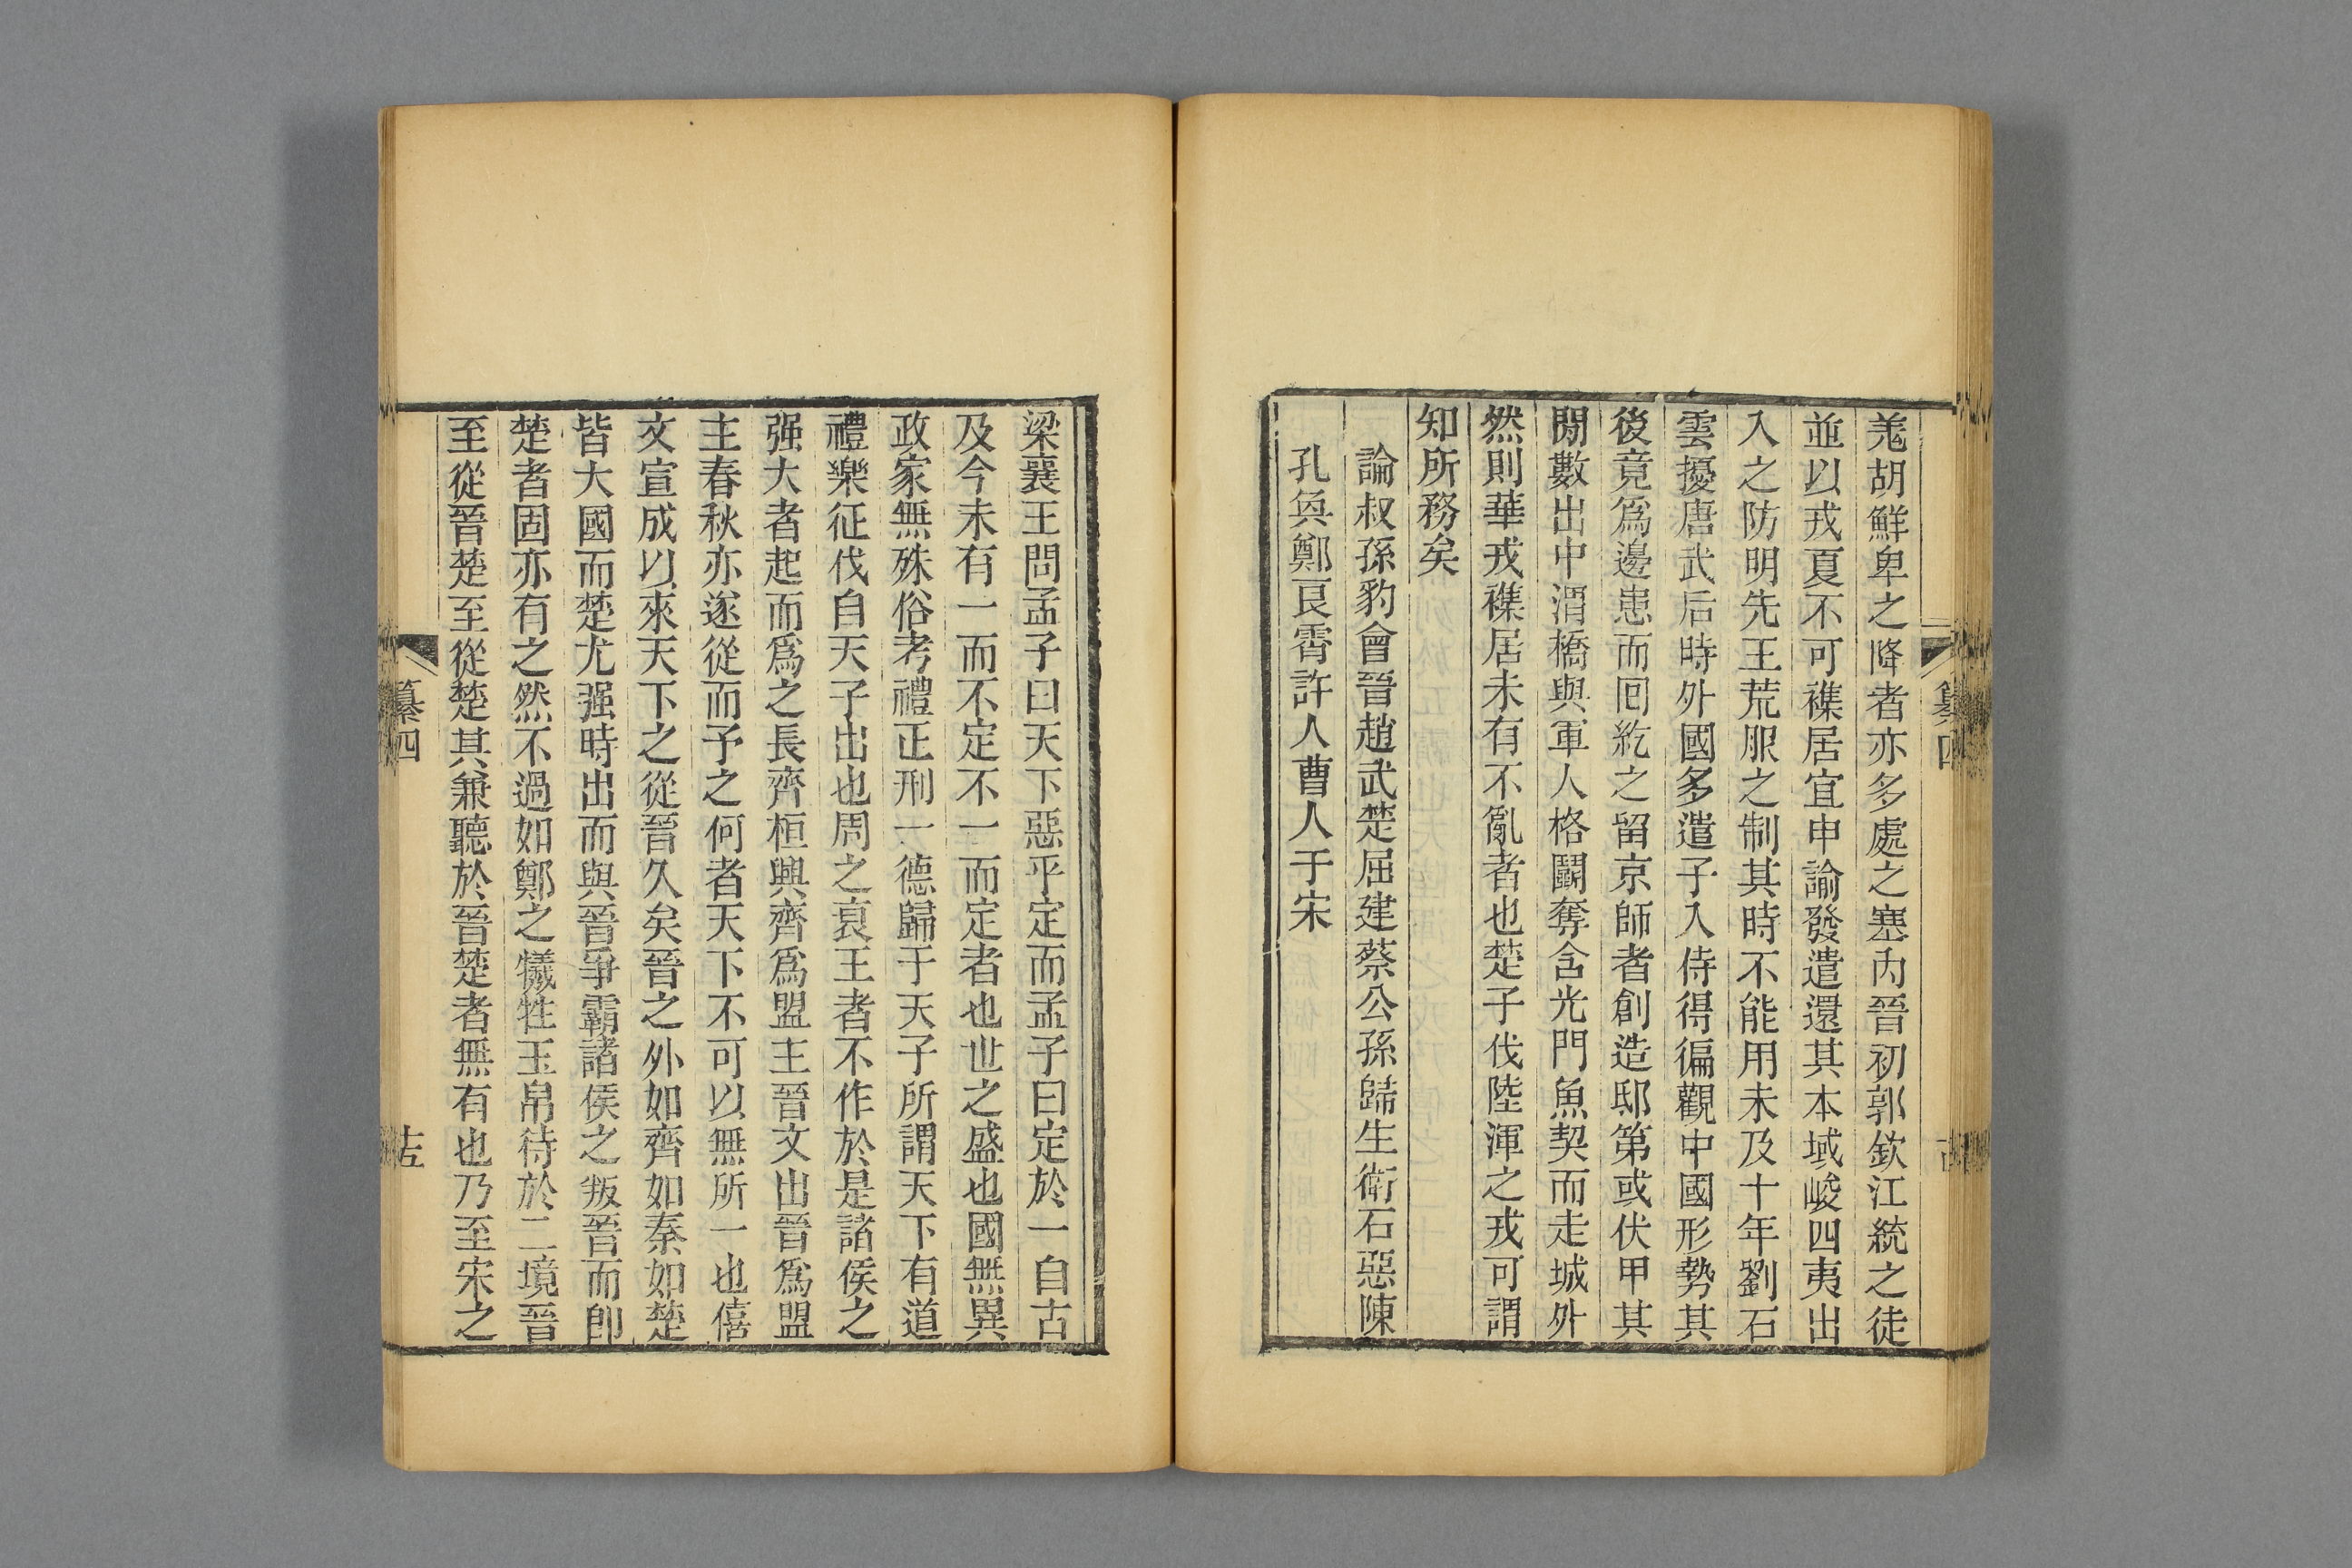 羗胡鮮卑之降者亦多處之塞內晉初郭欽江統之徒
並以戎夏不可襍居宜申諭發遣還其本域峻四夷出
入之防明先王荒服之制其時不能用未及十年劉石
雲擾唐武后時外國多遣子入侍得徧觀中國形勢其
後竟爲邊患而回紇之留京師者創造邸第或伏甲其
閒數出中渭橋與軍人格鬬奪含光門魚契而走城外
然則華戎襍居未有不亂者也楚子伐陸渾之戎可謂
知所務矣
論叔孫豹會晉趙武楚屈建蔡公孫歸生衛石惡陳
孔奐鄭良霄許人曹人于宋
纂四
梁襄王問孟子曰天下惡乎定而孟子曰定於一自古
及今未有一而不定不一而定者也世之盛也國無異
政家無殊俗考禮正刑一德歸于天子所謂天下有道
禮樂征伐自天子出也周之衰王者不作於是諸侯之
强大者起而爲之長齊桓興齊爲盟主晉文出晉爲盟
主春秋亦遂從而予之何者天下不可以無所一也僖
文宣成以來天下之從晉久矣晉之外如齊如秦如楚
皆大國而楚尤强時出而與晉爭霸諸侯之叛晉而卽
楚者固亦有之然不過如鄭之犧牲玉帛待於二境晉
至從晉楚至從楚其兼聽於晉楚者無有也乃至宋之
纂四